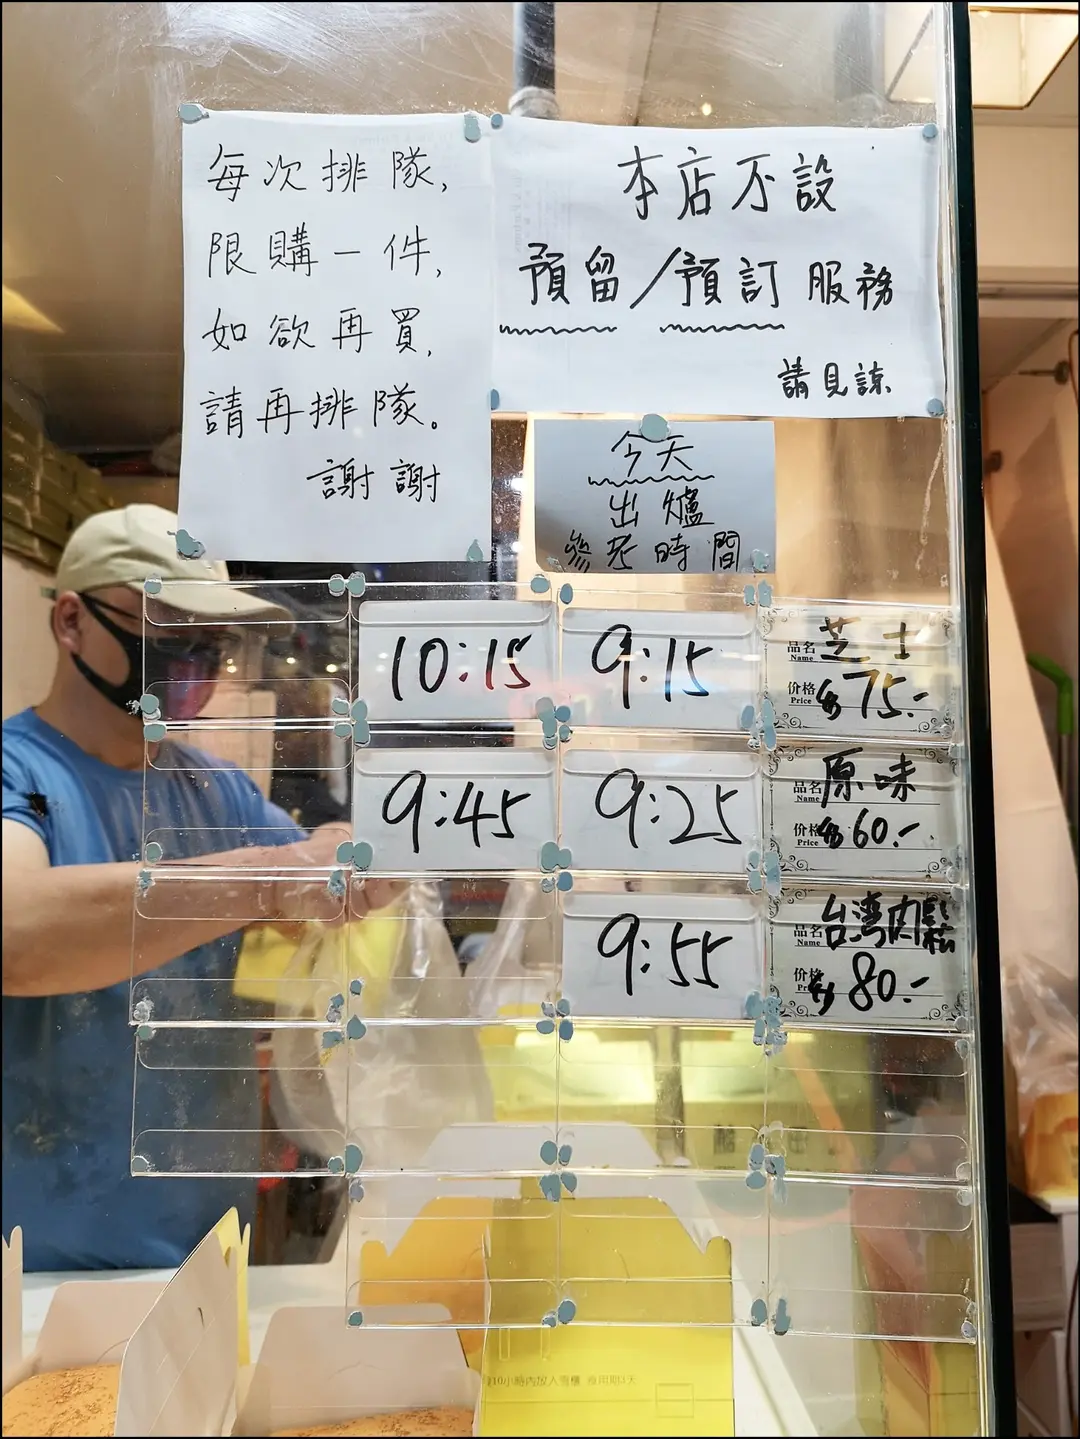 每次排隊,
限購一件,
如欲再買,
請再排隊。
謝謝
本店不設
預留/預訂服務
請見諒
今天
出爐
參考時間
10:15
9:15
品名 芝士
Name
价格 $75.-
Price
9:45
9:25
品名 原味
Name
价格 $60.-
Price
9:55
品名 台灣肉鬆
Name
价格 $80.-